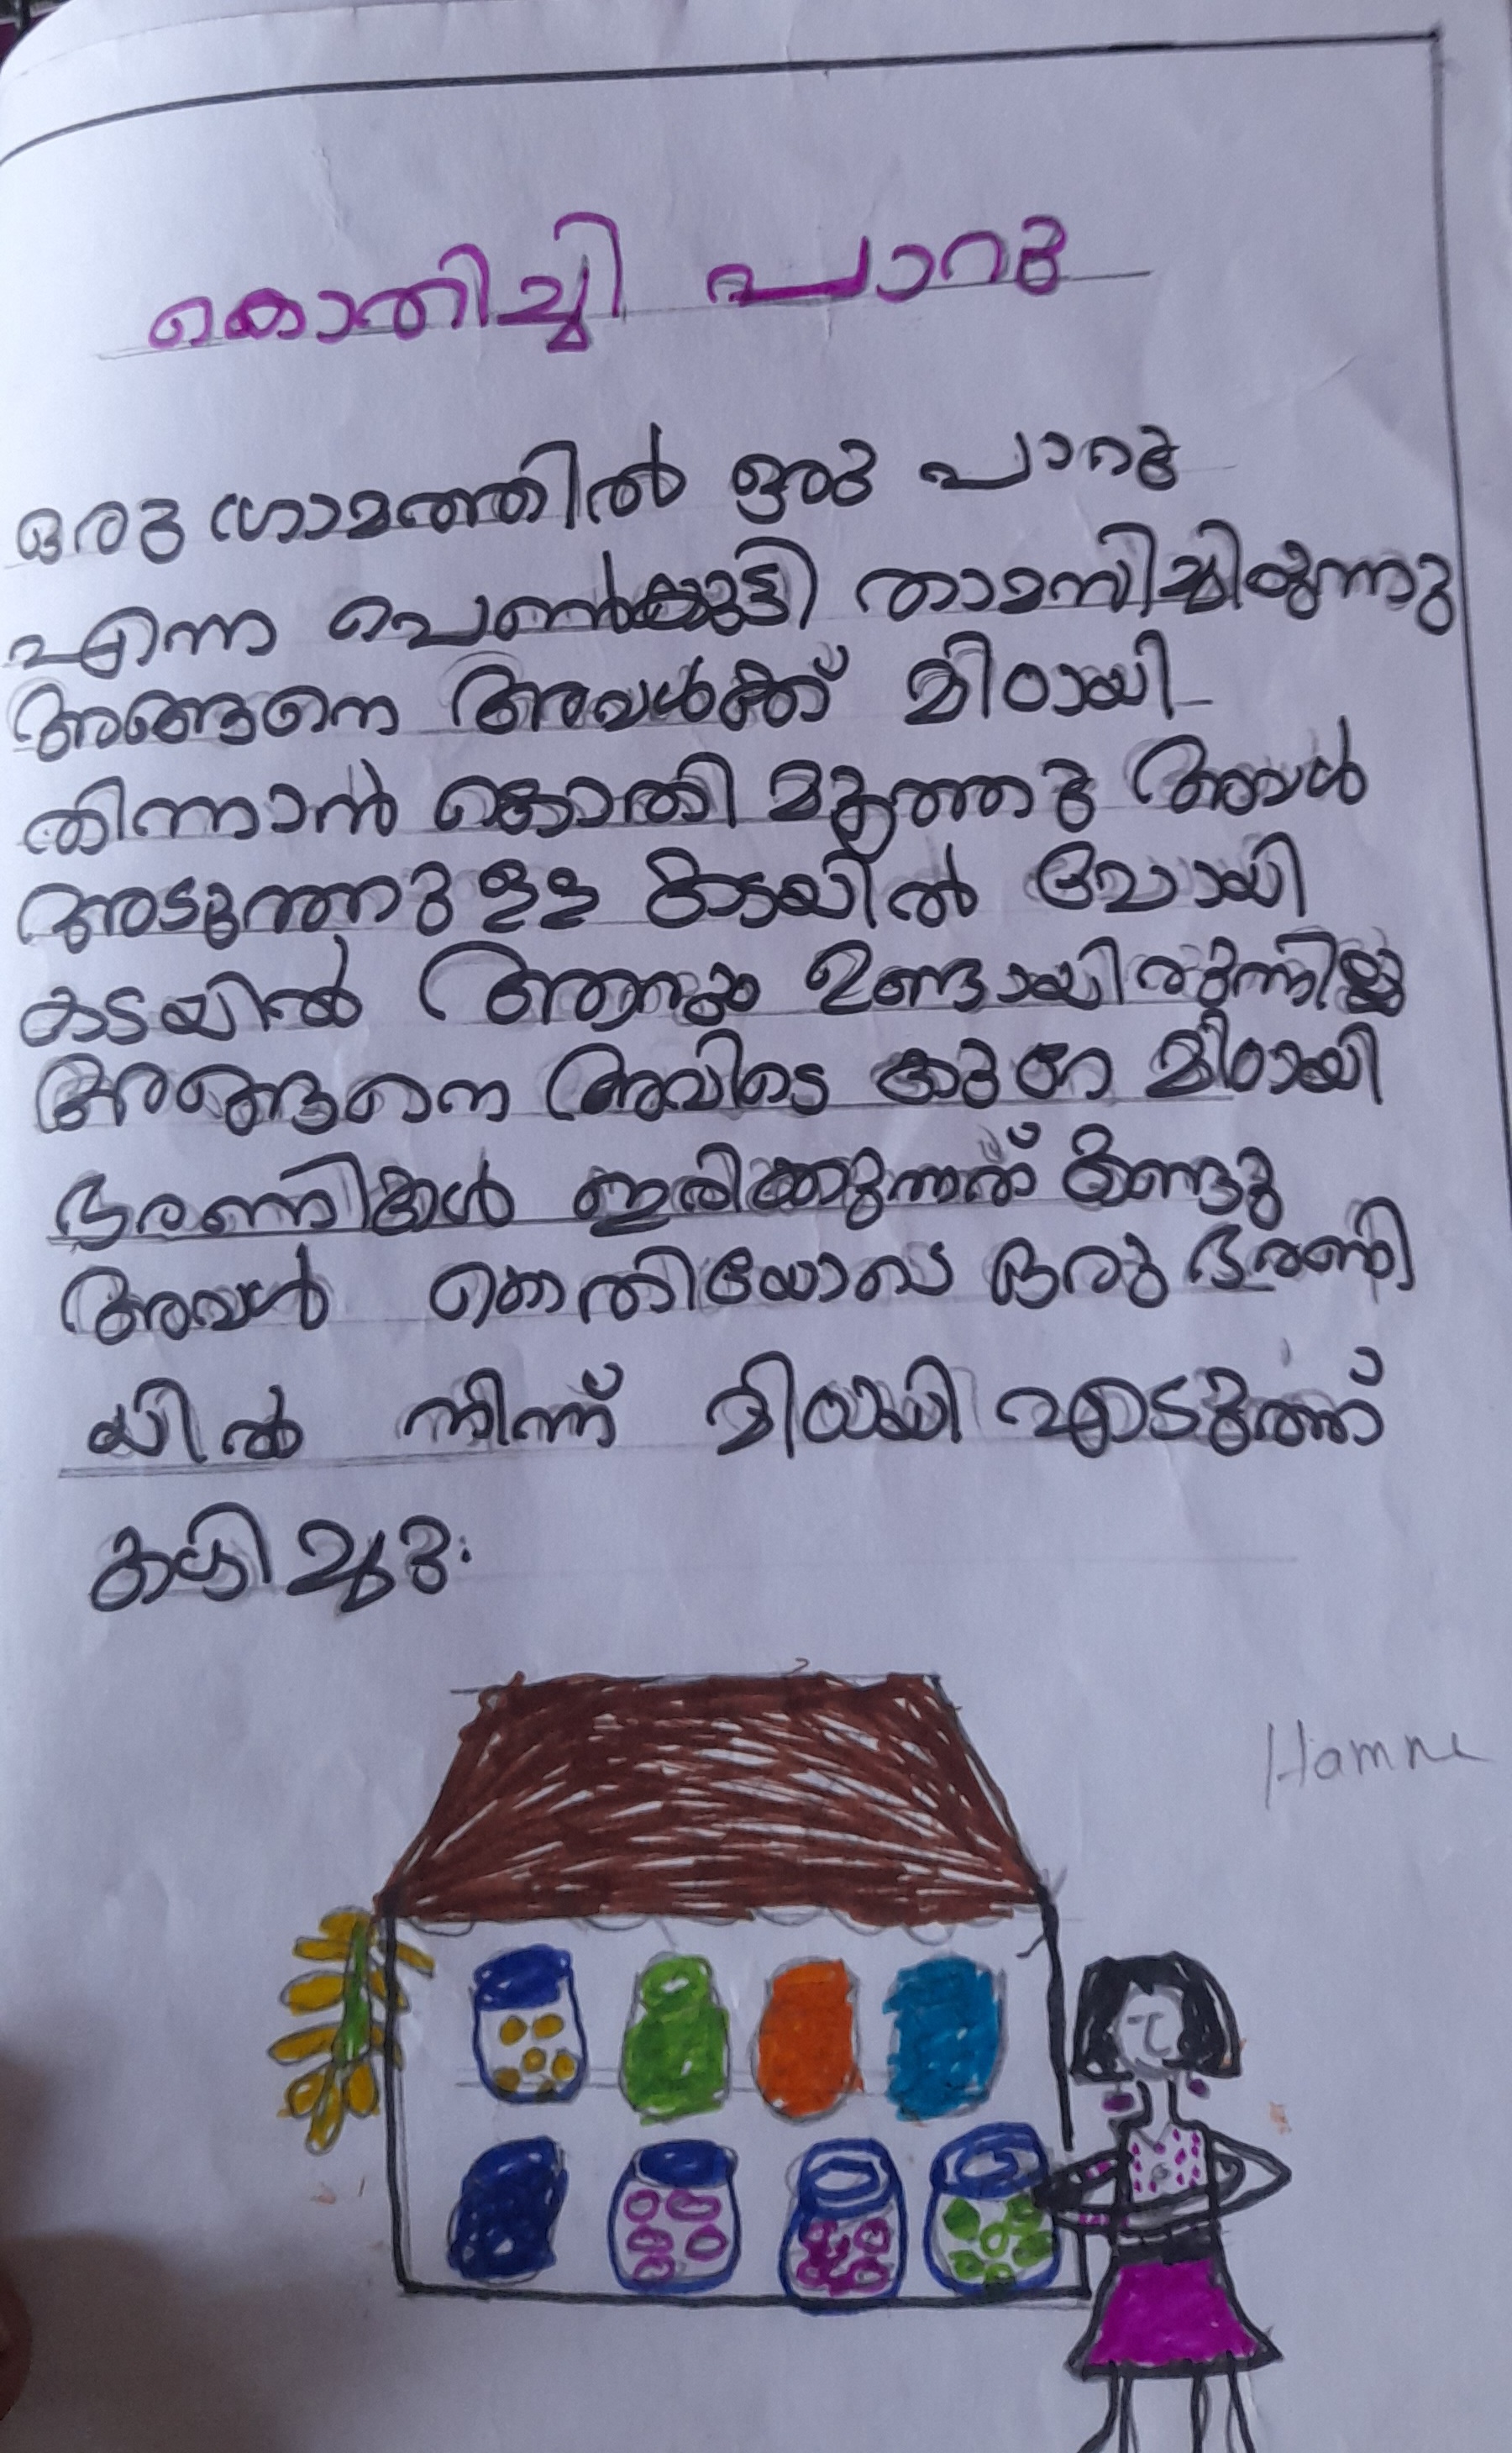 കൊതിച്ചി പാറു
ഒരു ഗ്രാമത്തിൽ ഒരു പാറു
എന്ന പെൺകുട്ടി താമസിച്ചിരുന്നു
അങ്ങനെ അവൾക്ക് മിഠായി
തിന്നാൻ കൊതി മൂത്തു അവൾ
അടുത്തുള്ള കടയിൽ പോയി
കടയിൽ ആരും ഉണ്ടായിരുന്നില്ല
അങ്ങനെ അവിടെ കുറെ മിഠായി
ഭരണികൾ ഇരിക്കുന്നത് കണ്ടു
അവൾ ഒരു ഭരണി
യിൽ നിന്ന് മിഠായി എടുത്ത്
കഴിച്ചു.